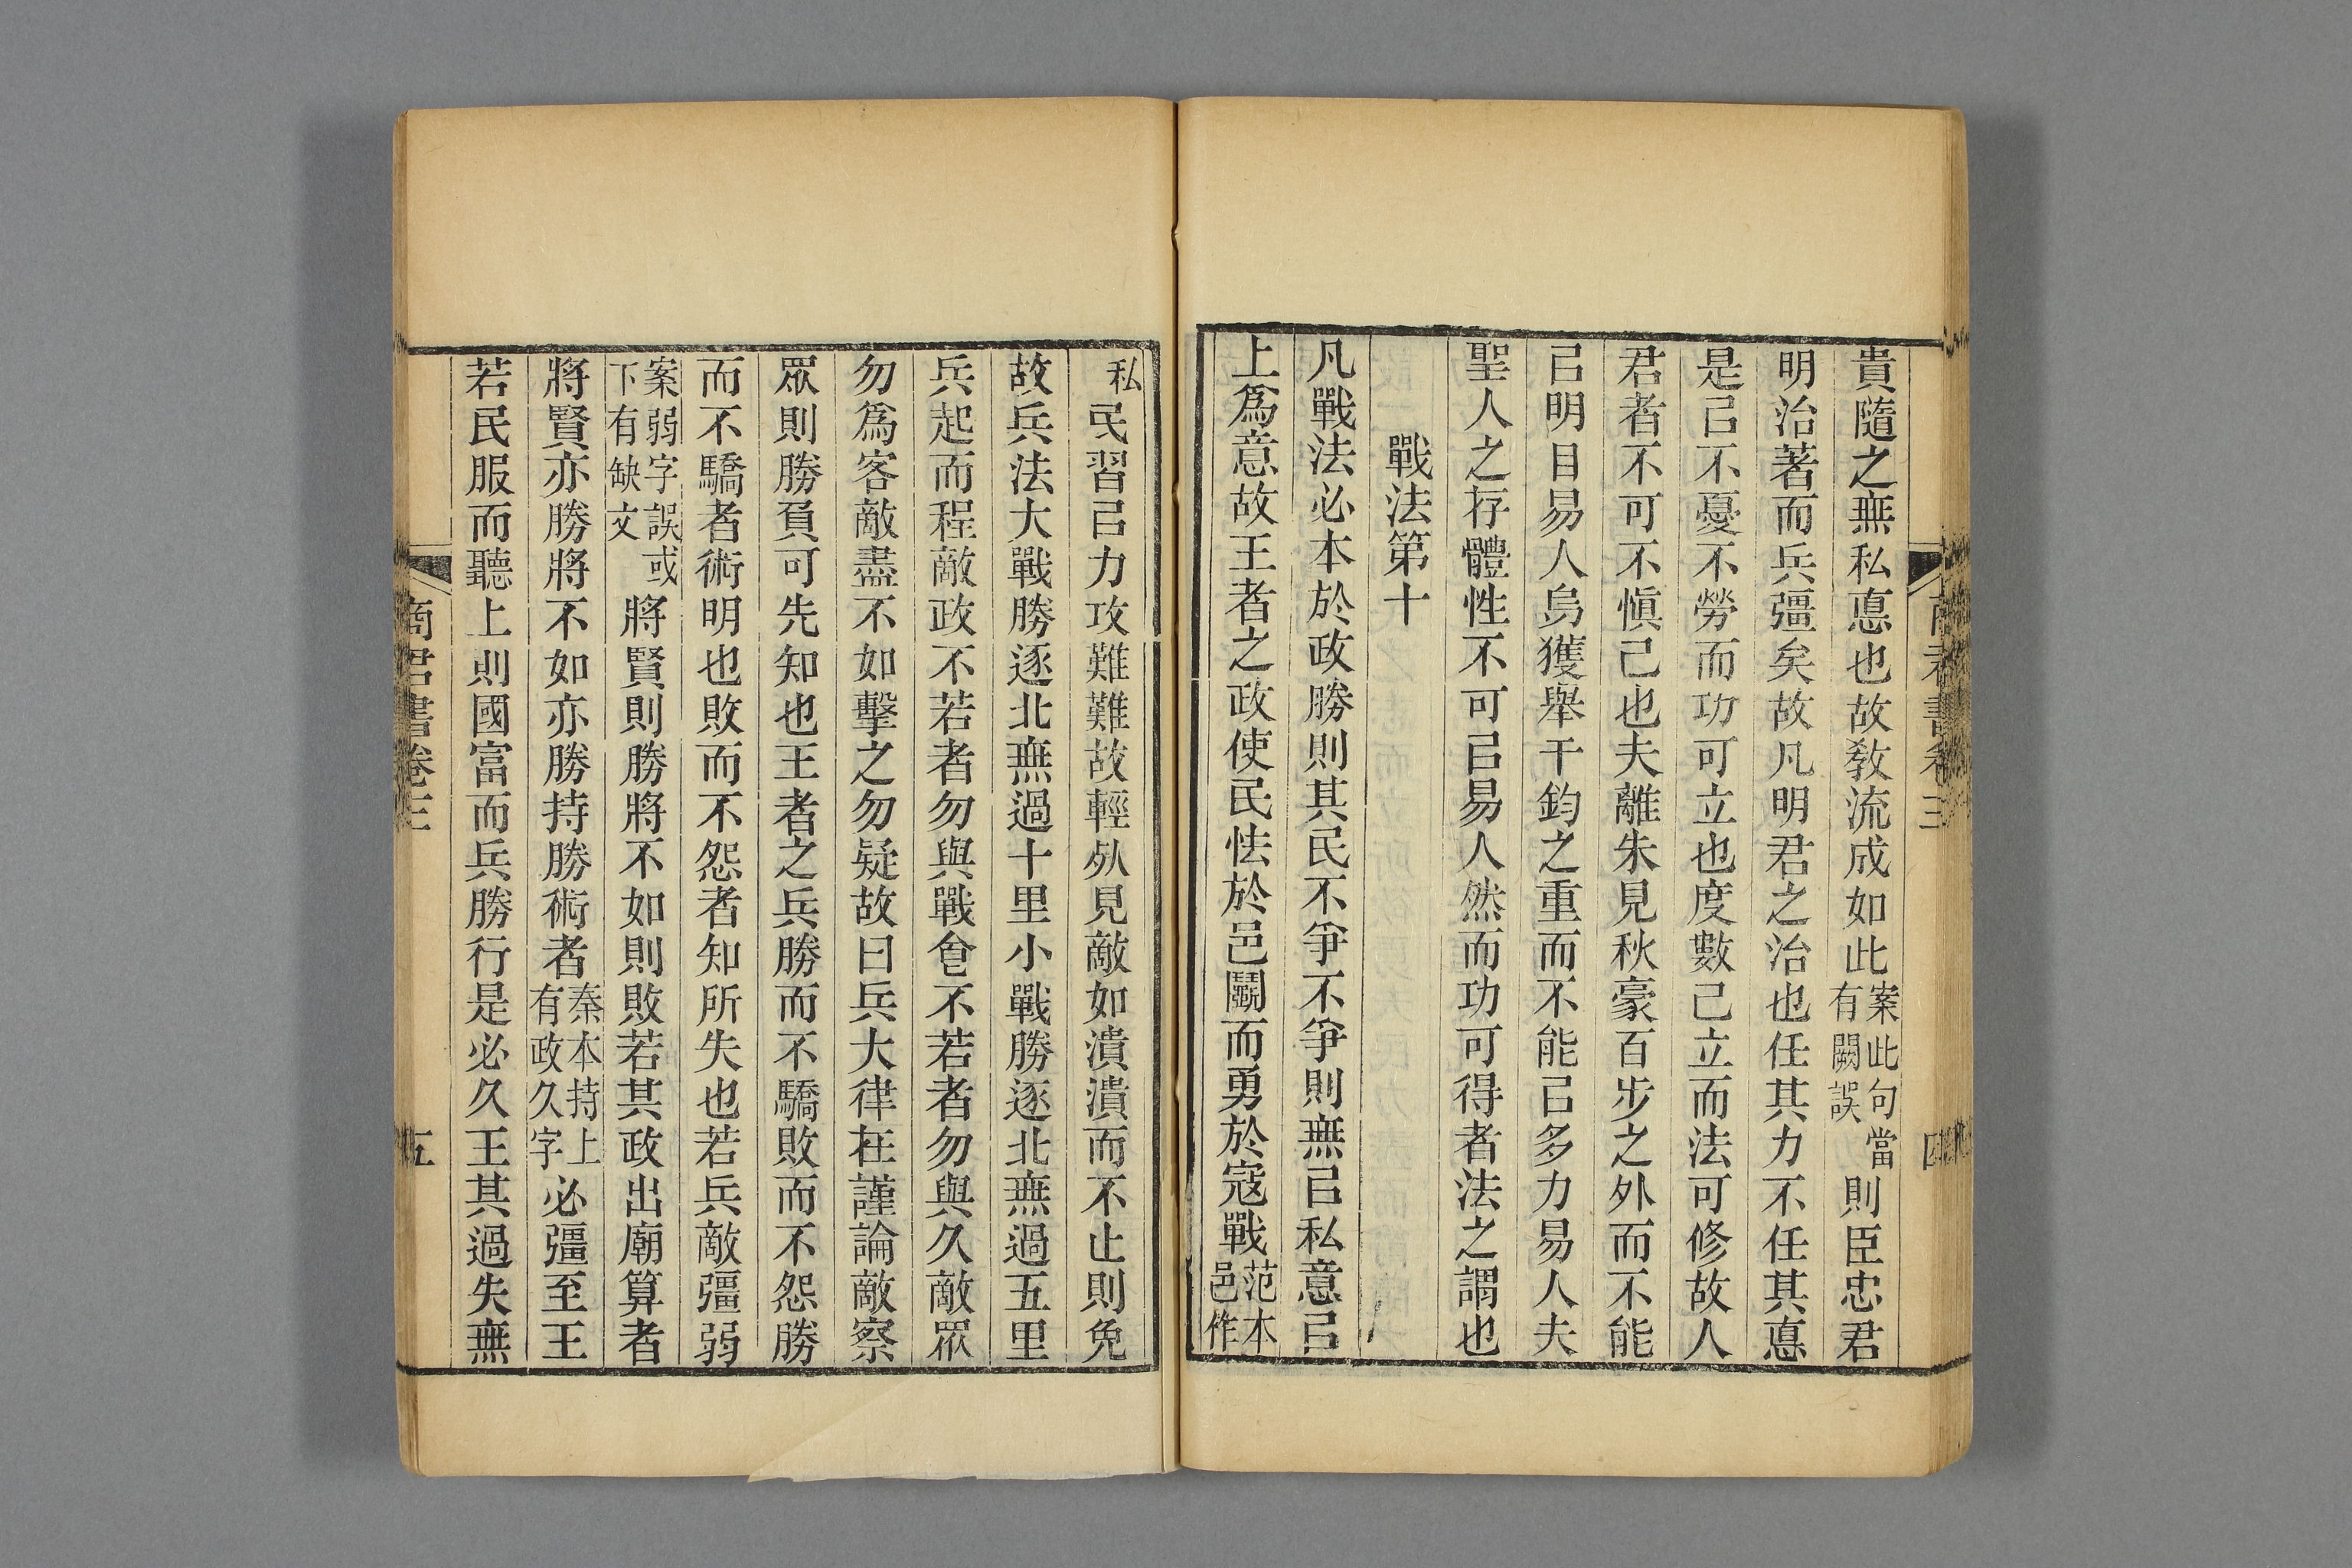 商君書卷三
四
貴隨之無私悳也故敎流成如此案此句當有闕誤則臣忠君
明治著而兵彊矣故凡明君之治也任其力不任其悳
是㠯不憂不勞而功可立也度數已立而法可修故人
君者不可不愼己也夫離朱見秋豪百步之外而不能
㠯明目易人烏獲舉千鈞之重而不能㠯多力易人夫
聖人之存體性不可㠯易人然而功可得者法之謂也
戰法第十
凡戰法必本於政勝則其民不爭不爭則無㠯私意㠯
上爲意故王者之政使民怯於邑鬬而勇於寇戰范本邑作
私民習㠯力攻難難故輕𣦸見敵如潰潰而不止則免
故兵法大戰勝逐北無過十里小戰勝逐北無過五里
兵起而程敵政不若者勿與戰𠊊不若者勿與久敵眾
勿爲客敵盡不如擊之勿疑故曰兵大律在謹論敵察
眾則勝負可先知也王者之兵勝而不驕敗而不怨勝
而不驕者術明也敗而不怨者知所失也若兵敵彊弱
案弱字誤或下有缺文將賢則勝將不如則敗若其政出廟算者
將賢亦勝將不如亦勝持勝術者秦本持上有政久字必彊至王
若民服而聽上則國富而兵勝行是必久王其過失無
商君書卷三
五